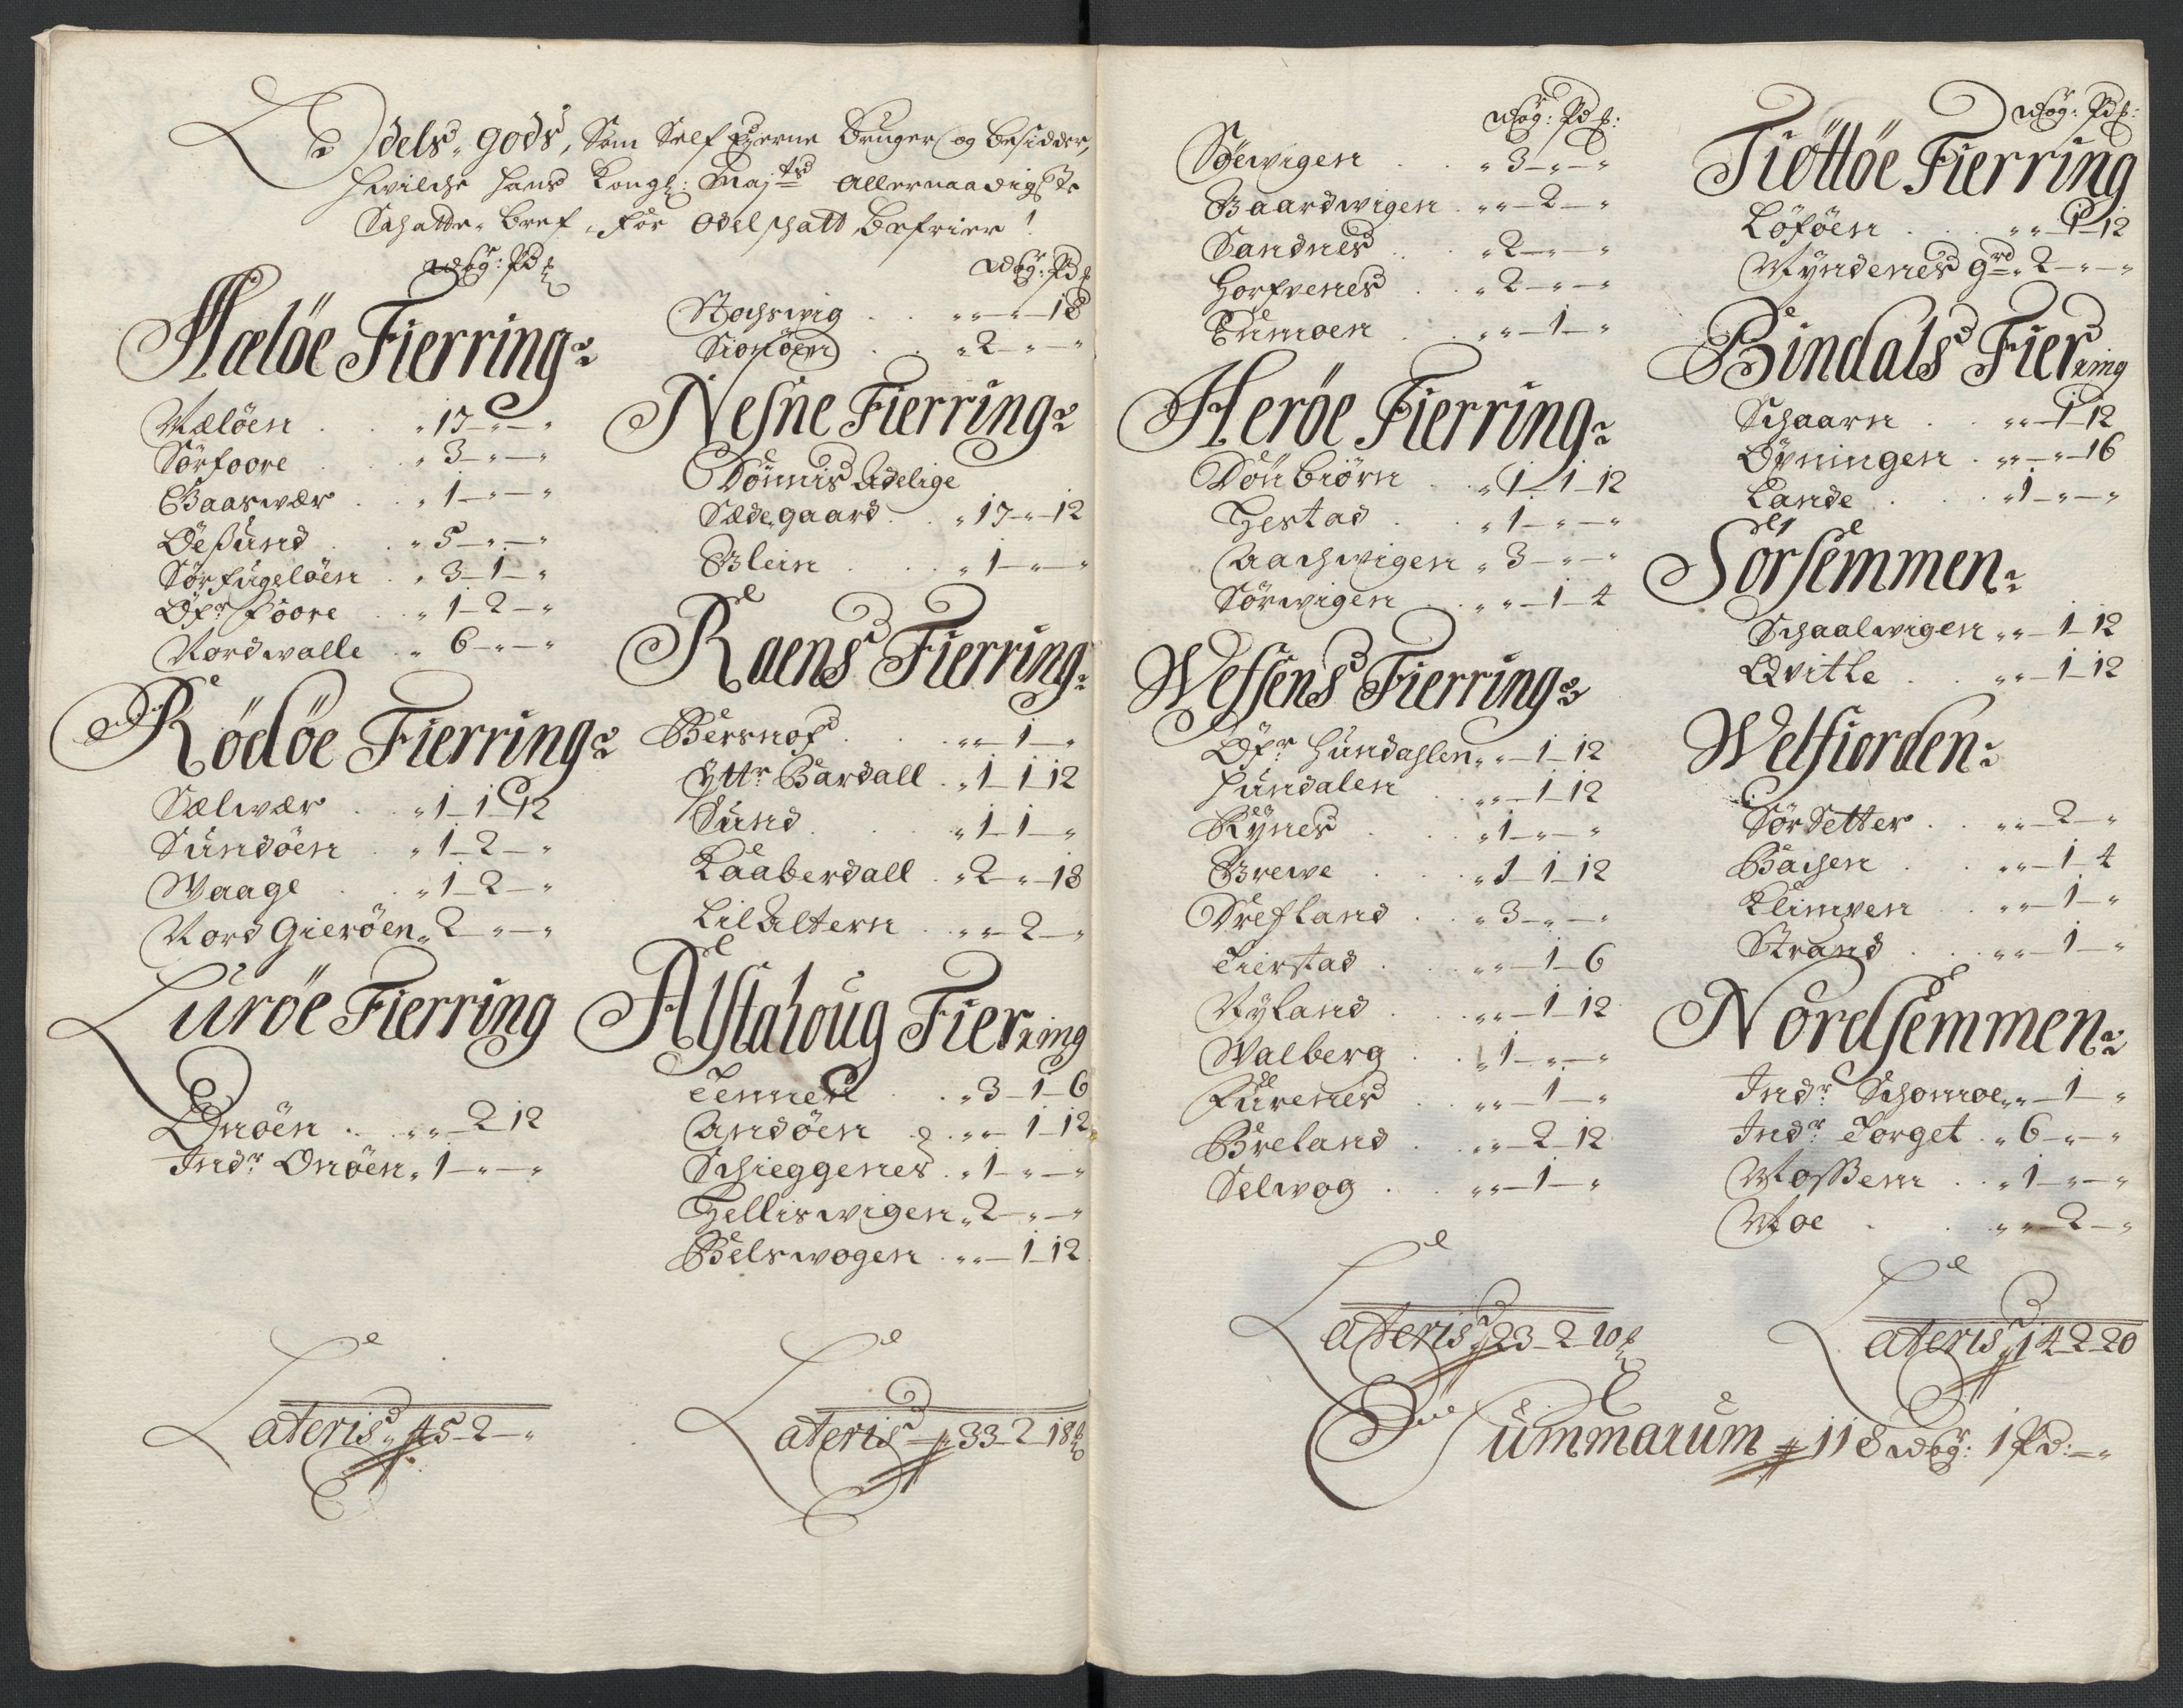 Odels-gods, Som Self Eyerne Bruger og besidder,
hvilche hans Kongl: Maj:ts allernaadigste
Schatte-bref, for odelschatt befrier!
wog: Pd ℔
Hæløe Fierring
Mæløen . . „ 17 - „ - „
Sørfoore . . „ 3 - „ - „
Baaswær . . „ 1 - „ - „
Øeßund . . „ 5 - „ - „
Sørfugeløen . „ 3 - 1 - „
Øfr foore . . „ 1 - 2 - „
Nordwalle . „ 6 - „ - „
Rødøe Fierring
Sælwær . . „ 1 - 1 - 12
Sundøen . „ 1 - 2 - „
Waage . . „ 1 - 2 - „
Nord Gierøen „ 2 - „ - „
Lurøe Fierring
Onøen . . „ „ - 2 12
Indr Onøen „ 1 - „ - „
Lateris „ 45 - 2 - „
wog: Pd ℔
Stochswig . . „ „ - „ - 18
Sionøen . . „ 2 - „ - „
Nesne Fierring
Dønnis Adelige
Sædegaard . . „ 17 - „ - 12
Blein . . . „ 1 - „ - „
Raens Fierring
Bersnos . . „ „ - 1 - „
Yttr Bardall . „ 1 - 1 12
Sund . . . „ 1 - 1 - „
Kaaberdall . „ 2 - „ - 18
Lil Altern . „ „ - 2 - „
Alstahoug Fierring
Tennen . . „ 3 - 1 - 6
Andøen . „ „ - 1 - 12
Schieggenes . „ 1 - „ - „
Helliswigen „ 2 - „ - „
Belswogen . „ „ - 1 - 12
Lateris - „ 33 - 2 - 18 ℔
wog: Pd ℔:
Søewigen . . „ 3 - „ - „
Baardwigen . „ „ - 2 - „
Sandnes . . „ 2 - „ - „
Horfvenes . „ 2 - „ - „
Tumoen . . „ „ - 1 - „
Herøe Fierring
Dønbiørn . . „ 1 - 1 - 12
Hestad . . „ 1 - „ - „
Aachwigen „ 3 - „ - „
Sørwigen . . „ „ - 1 - 4
Wefsens Fierring
Øfr Hundahlen „ „ - 1 - 12
Hundalen . „ „ - 1 - 12
Rynes . . „ 1 - „ - „
Brewe . . „ 1 - 1 - 12
Drefland . . „ 3 - „ - „
Tierstad . . „ „ - 1 - 6
Nyland . . „ „ - 1 - 12
Walberg . . „ 1 - „ - „
Furenes . . „ „ - 1 - „
Breland . „ „ - 2 - 12
Selwog . . „ „ - 1 - „
Lateris „ 23 - 2 - 10 ℔
wog: Pd ℔:
Tiøttøe Fierring
Løføen . . „ „ - 1 - 12
Myndenes grd „ 2 - „ - „
Bindals Fierring
Schaarn . . „ „ - 1 - 12
Øyningen . „ „ - „ - 16
Lande . . „ 1 - „ - „
Sørsemmen
Schaalwigen „ „ - 1 - 12
Qvitle . . „ „ - 1 - 12
Welfiorden
Sør Setter . . „ „ - 2 - „
Bachen . . „ „ - 1 - 4
Klimpen . . „ „ - 1 - „
Strand . . „ „ - 1 - „
Nordsemmen
Indr Schomoe „ „ - 1 - „
Indr Torget . „ 6 - „ - „
Moßem . . „ 1 - „ - „
Moe . . „ „ - 2 - „
Lateris „ 14 - 2 - 20
Summarum „ 118 wog: 1 Pd: - „